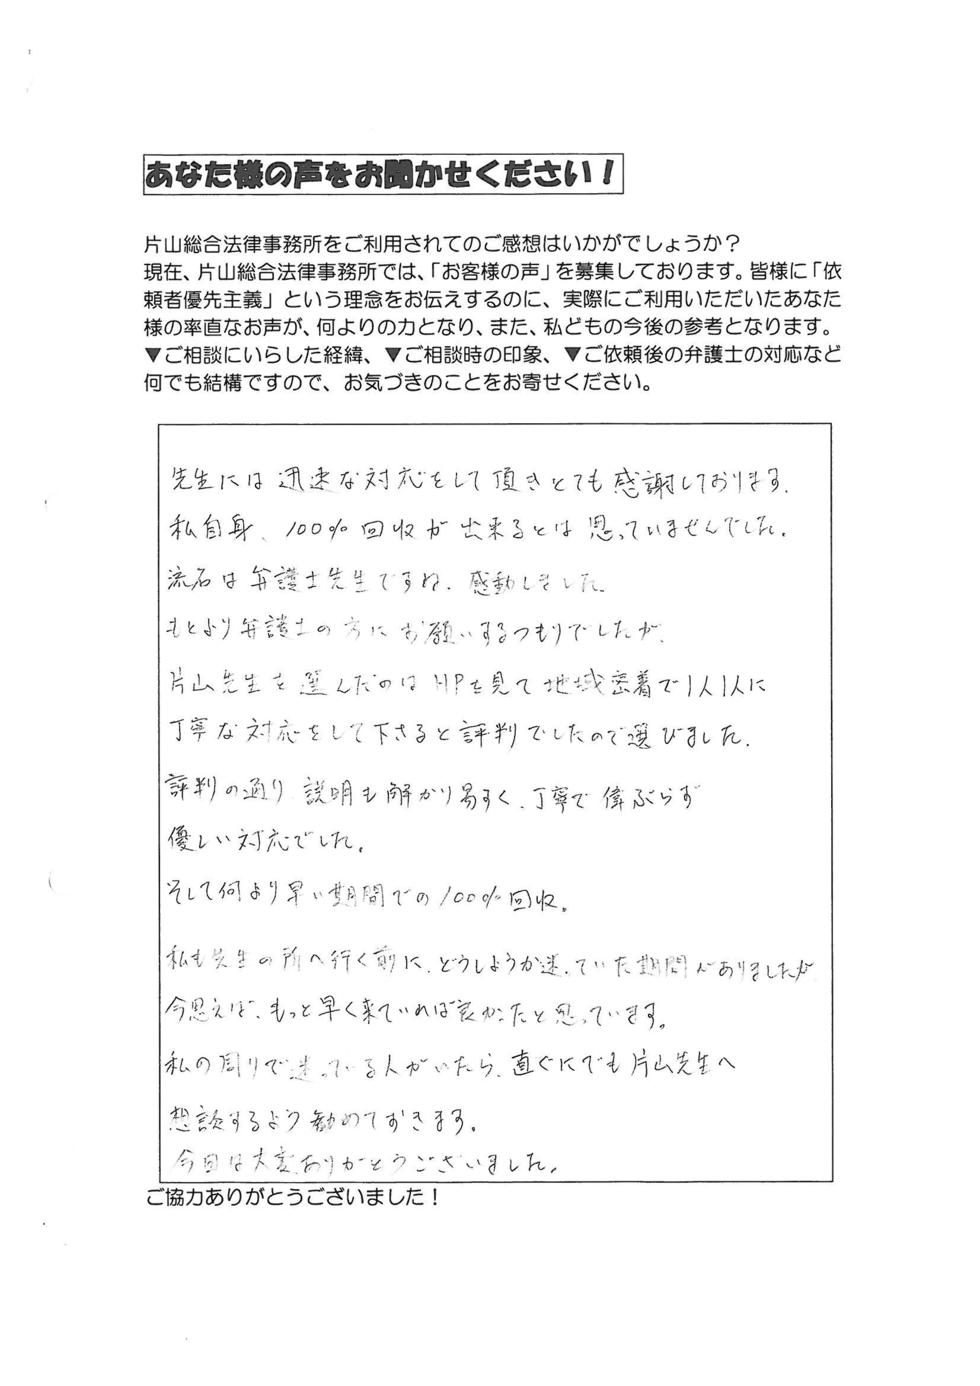 あなた様の声をお聞かせください！
片山総合法律事務所をご利用されてのご感想はいかがでしょうか？
現在、片山総合法律事務所では、「お客様の声」を募集しております。皆様に「依
頼者優先主義」という理念をお伝えするのに、実際にご利用いただいたあなた
様の率直なお声が、何よりの力となり、また、私どもの今後の参考となります。
▼ご相談にいらした経緯、▼ご相談時の印象、▼ご依頼後の弁護士の対応など
何でも結構ですので、お気づきのことをお寄せください。
先生には迅速な対応をして頂きとても感謝しております.
私自身、100%回収が出来るとは思っていませんでした。
流石は弁護士先生ですね. 感動しました.
もとより弁護士の方にお願いするつもりでしたが、
片山先生を選んだのはHPを見て地域密着で1人1人に
丁寧な対応をして下さると評判でしたので選びました.
評判の通り 説明も解かり易すく、丁寧で偉ぶらず
優しい対応でした。
そして何より早い期間での100%回収。
私も先生の所へ行く前に、どうしようか迷っていた期間がありましたが
今思えば、もっと早く来ていれば良かったと思っています。
私の周りで迷っている人がいたら、直ぐにでも片山先生へ
想談するよう勧めておきます。
今回は大変ありがとうございました。
ご協力ありがとうございました！